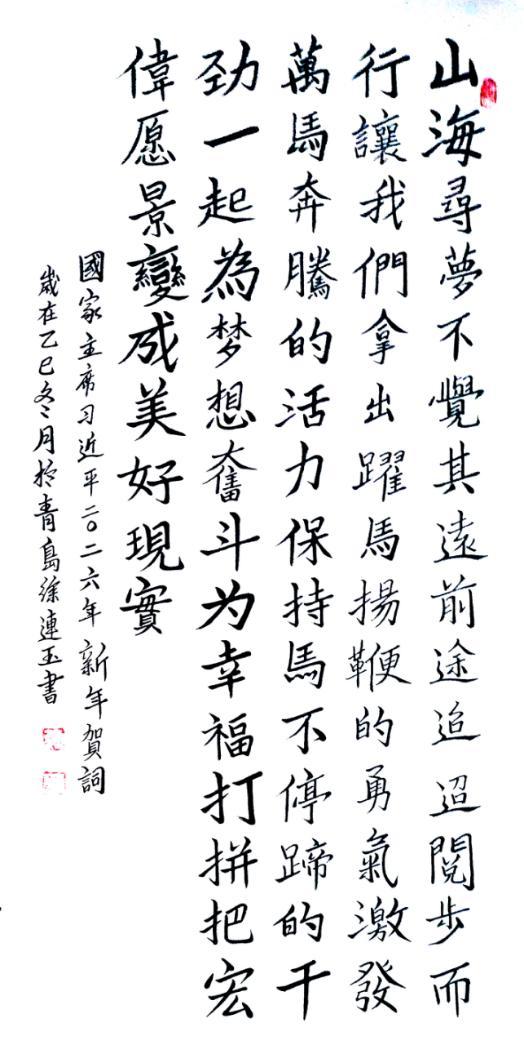 山海尋夢不覺其遠前途追迢閱步而
行讓我們拿出躍馬揚鞭的勇氣激發
萬馬奔騰的活力保持馬不停蹄的干
劲一起為梦想奮斗为幸福打拼把宏
偉愿景變成美好現實
國家主席习近平二〇二六年新年賀詞
歲在乙巳冬月於青島徐連玉書